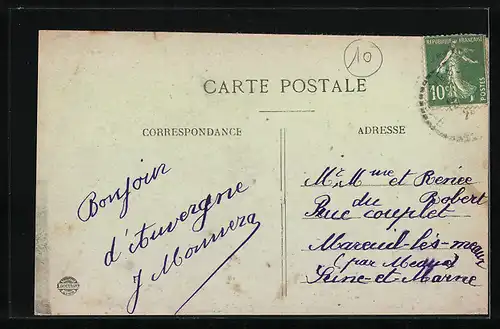 10
REPUBLIQUE FRANÇAISE
10c
POSTES
CARTE POSTALE
CORRESPONDANCE
ADRESSE
Bonjour
d'Auvergne
J
Mr, Mme et Renée
du Robert
Rue couplet
Mareuil-lès-meaux
(par Meaux)
Seine-et-Marne